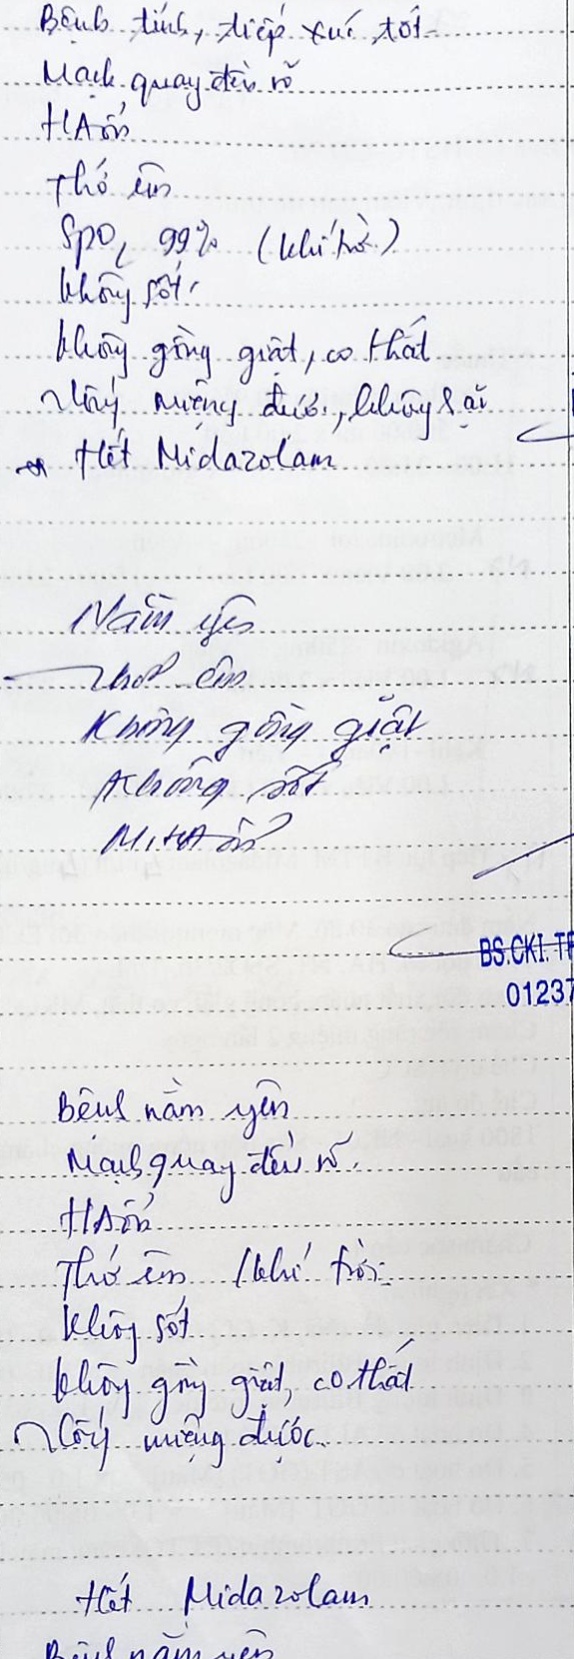 Bệnh tỉnh, tiếp xúc tốt
Mạch quay đều rõ
HA ổn
Thở êm
SpO2 99% (khí trời)
Không sốt
Không gồng giật, co thắt
miệng được, không sặc
Hết Midazolam
Nằm yên
Thở êm
Không gồng giật
Không sốt
M, HA ổn
BS.CKI. TR
01237
Bệnh nằm yên
Mạch quay đều rõ.
HA ổn
Thở êm (khí trời
Không sốt
Không gồng giật, co thắt
miệng được.
Hết Midazolam
Bệnh nằm yên